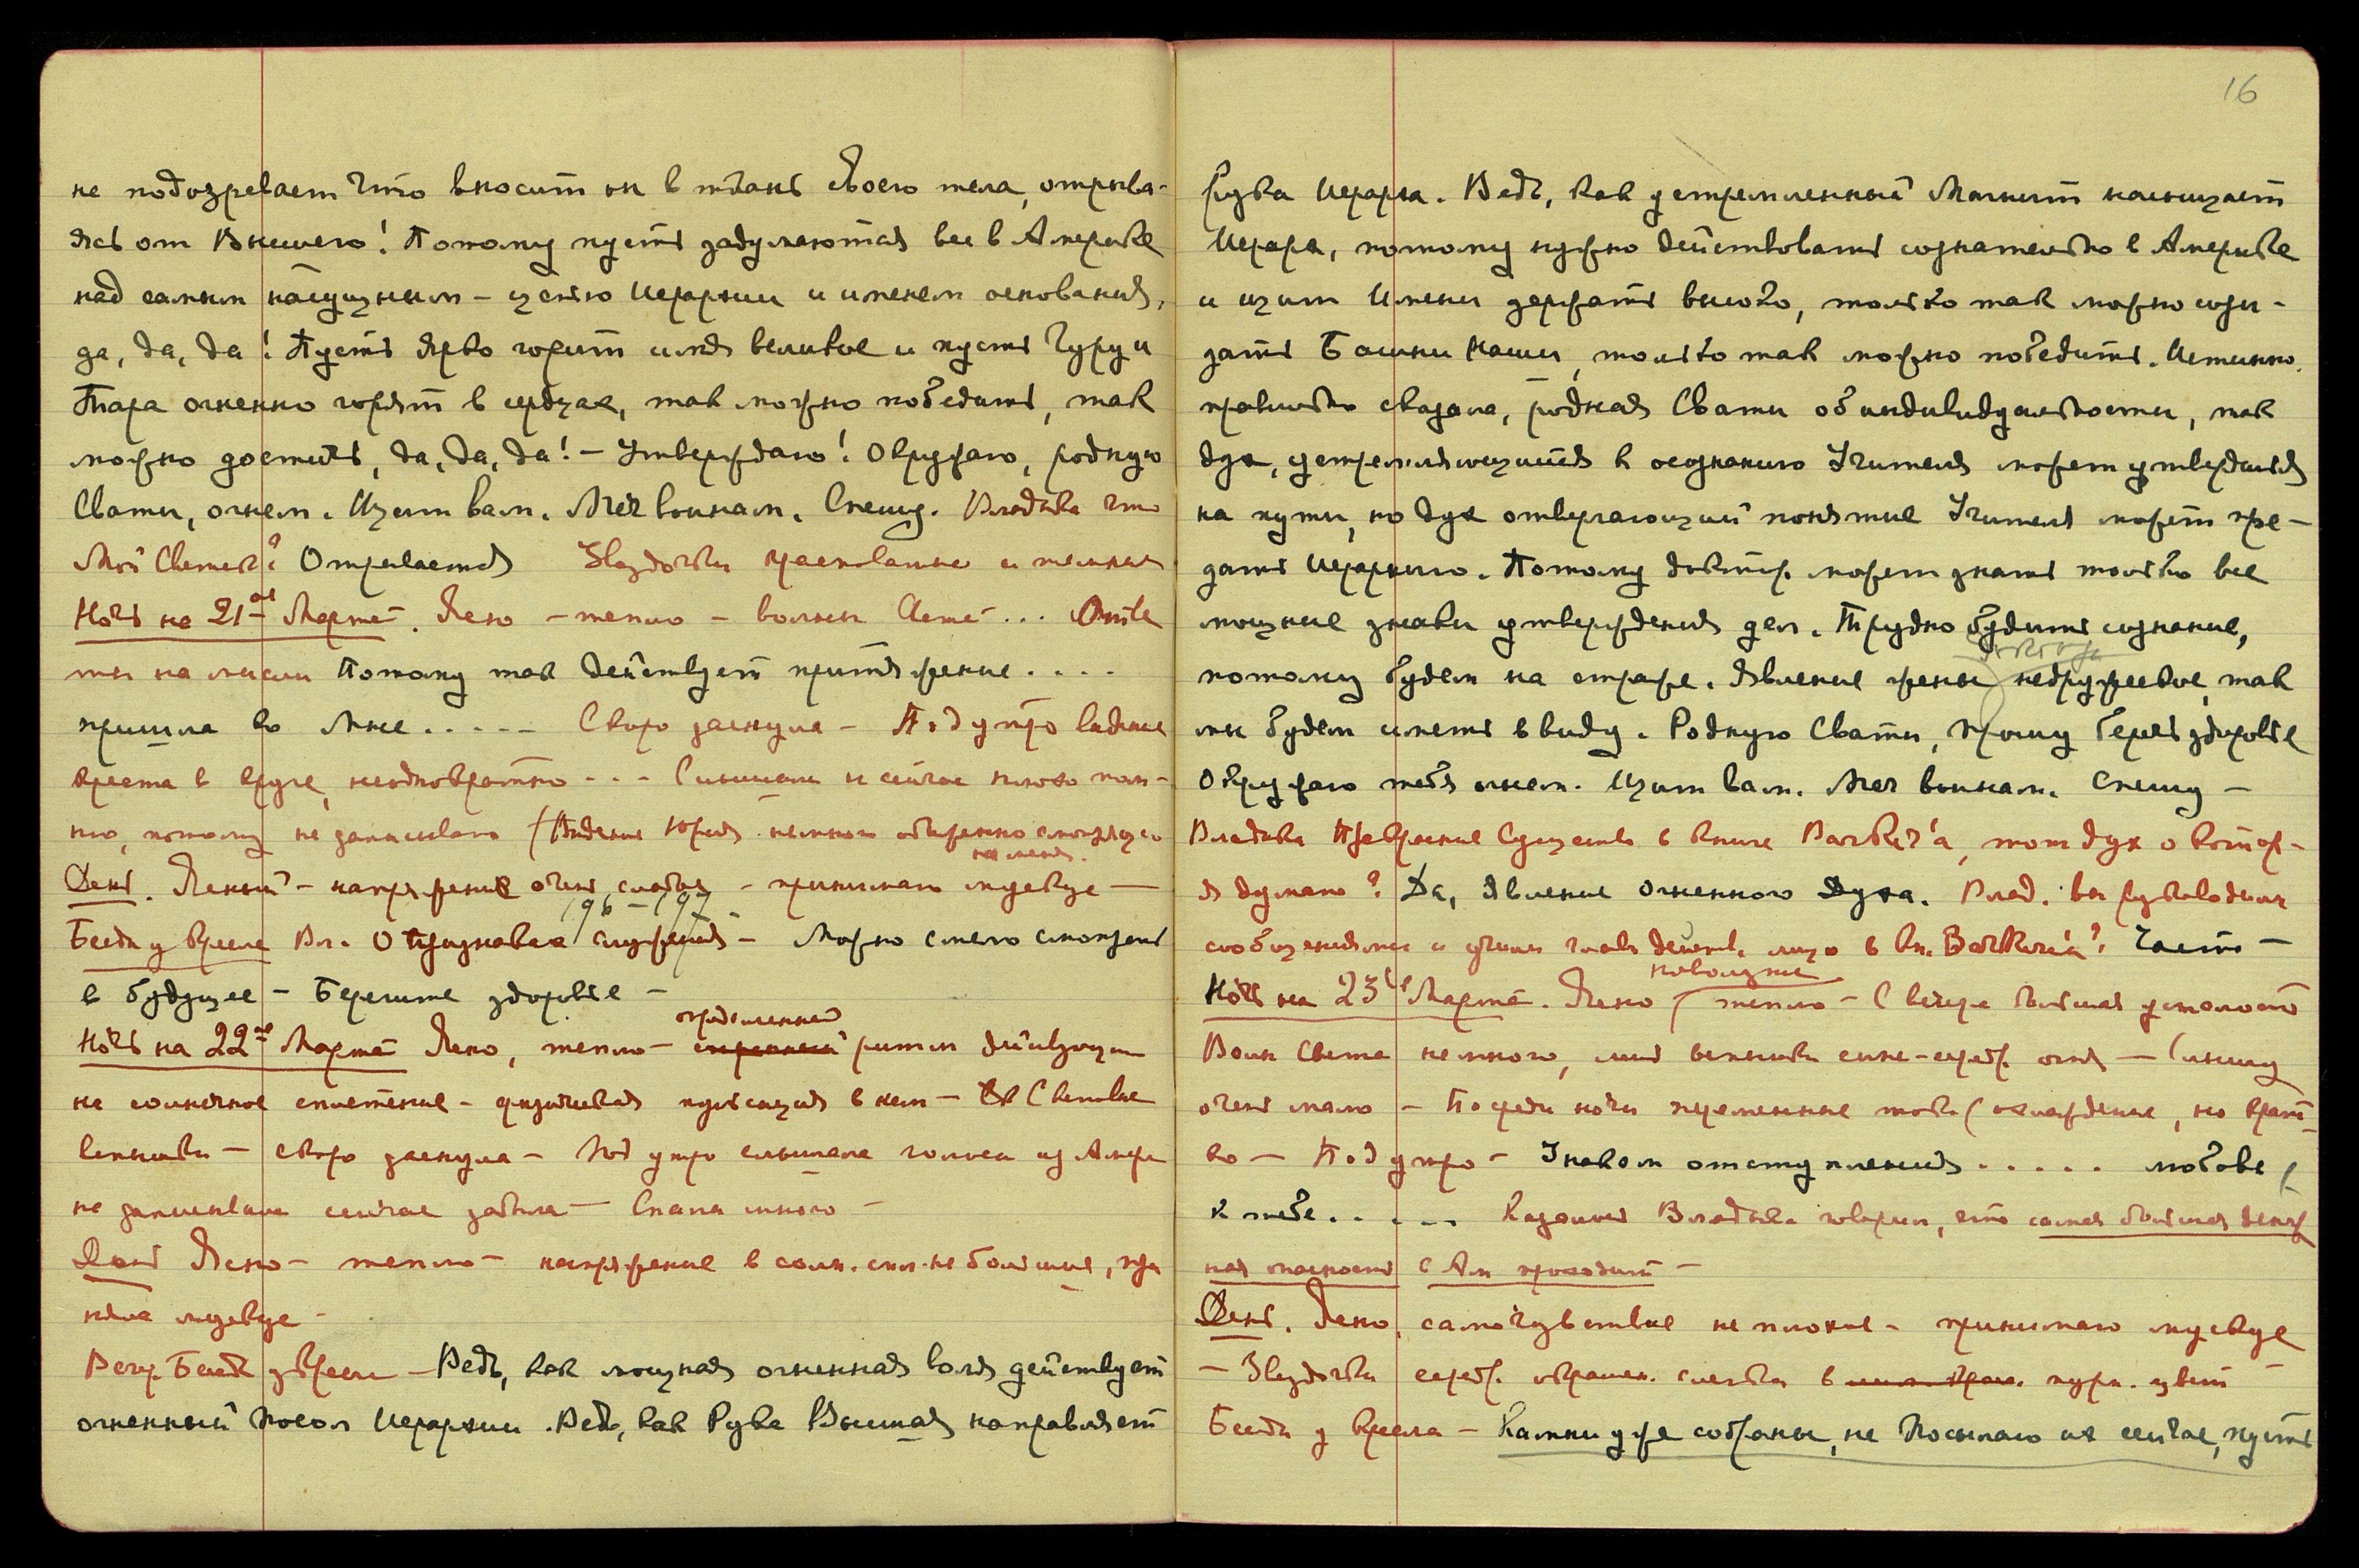 не подозревает что вносит он в ткань своего тела, отрыва-
ясь от Высшего! Потому пусть задумаются все в Америке
над самым насущным – цепью Иерархии и именем основания,
да, да, да! Пусть ярко горит имя великое и пусть Гуру и
Тара огненно горят в сердцах, так можно победить, так
можно достичь, да, да, да! – Утверждаю! Окружаю, родную
Свати, огнем. Щит вам. Меч воинам. Спешу. Владыка что
Мой Светик? Отрывается Звездочки и темные
Ночь на 21ое Марта. Ясно – тепло – волны света ...
ты на мысли Потому так действует притяжение ....
пришла ко Мне ..... Скоро заснула – Под утро видение
креста в круге, неоднократно ... Слышали и сейчас плохо пом-
ню, потому не записываю (Видение Юрия немного обиженно смотрящего
на меня.
День. Ясный – напряжение очень слабое – принимаю мускус –
196 – 197
Беседа у кресла Вл. О признаках служения – Можно смело смотреть
в будущее – Берегите здоровье –
определенный
Ночь на 22ое Марта Ясно, тепло – ритм действующий
на солнечное сплетение – пульсация в нем – Световые
вспышки – скоро заснула – Под утро слышала голоса из Амери
не записывала сейчас забыла – Спала много –
День Ясно – тепло – напряжение в солн. спл. не большие, при
няла мускус –
Веч. Беседа у Кресла – Ведь, как мощная огненная воля действует
огненный посол Иерархии. Ведь, как Рука Высшая направляет
16
рука Иерарха. Ведь, как устремленный Магнит насыщает
Иерарх, потому нужно действовать сознательно в Америке
и щит Имени держать высоко, только так можно сози-
дать Башни Наши, только так можно победить. Истинно,
правильно сказала, родная Свати об индивидуальности, так
дух, устремляющийся к осознанию Учителя может утвердиться
на пути, но дух отвергающий понятие Учителя может пре-
дать Иерархию. Потому доктор. может знать только все
мощные знаки утверждения дел. Трудно будить сознание,
потому будем на страже. Явление жены недружеское, так
мы будем иметь в виду. Родную Свати, прошу беречь здоровье
Окружаю тебя огнем. Щит вам. Меч воинам. Спешу –
Владыка Прекрасное Существо в книге , тот дух о котор-
я думаю? Да, явление Огненного Духа. Влад. вы руководили
сообщениями и главн. действ. лицо в кн. ? Часто –
полнолуние
Ночь на 23ье Марта. Ясно / тепло – С вечера большая усталость
Воли Света немного, лишь вспышки сине-серебр. огня – Слышу
очень мало – Посреди ночи переменные токи (охлаждение, но крат-
ко – Под утро – Знаком отступления ..... любовь
к тебе ..... Казалось Владыка говорил, что самая большая денеж
ная опасность с Ам проходит –
День. Ясно, самочувствие не плохое – принимаю мускус
– Звездочки серебр. окрашен. слегка в пурп. цвет
Беседа у кресла – Камни уже собраны, не посылаю их сейчас, пусть